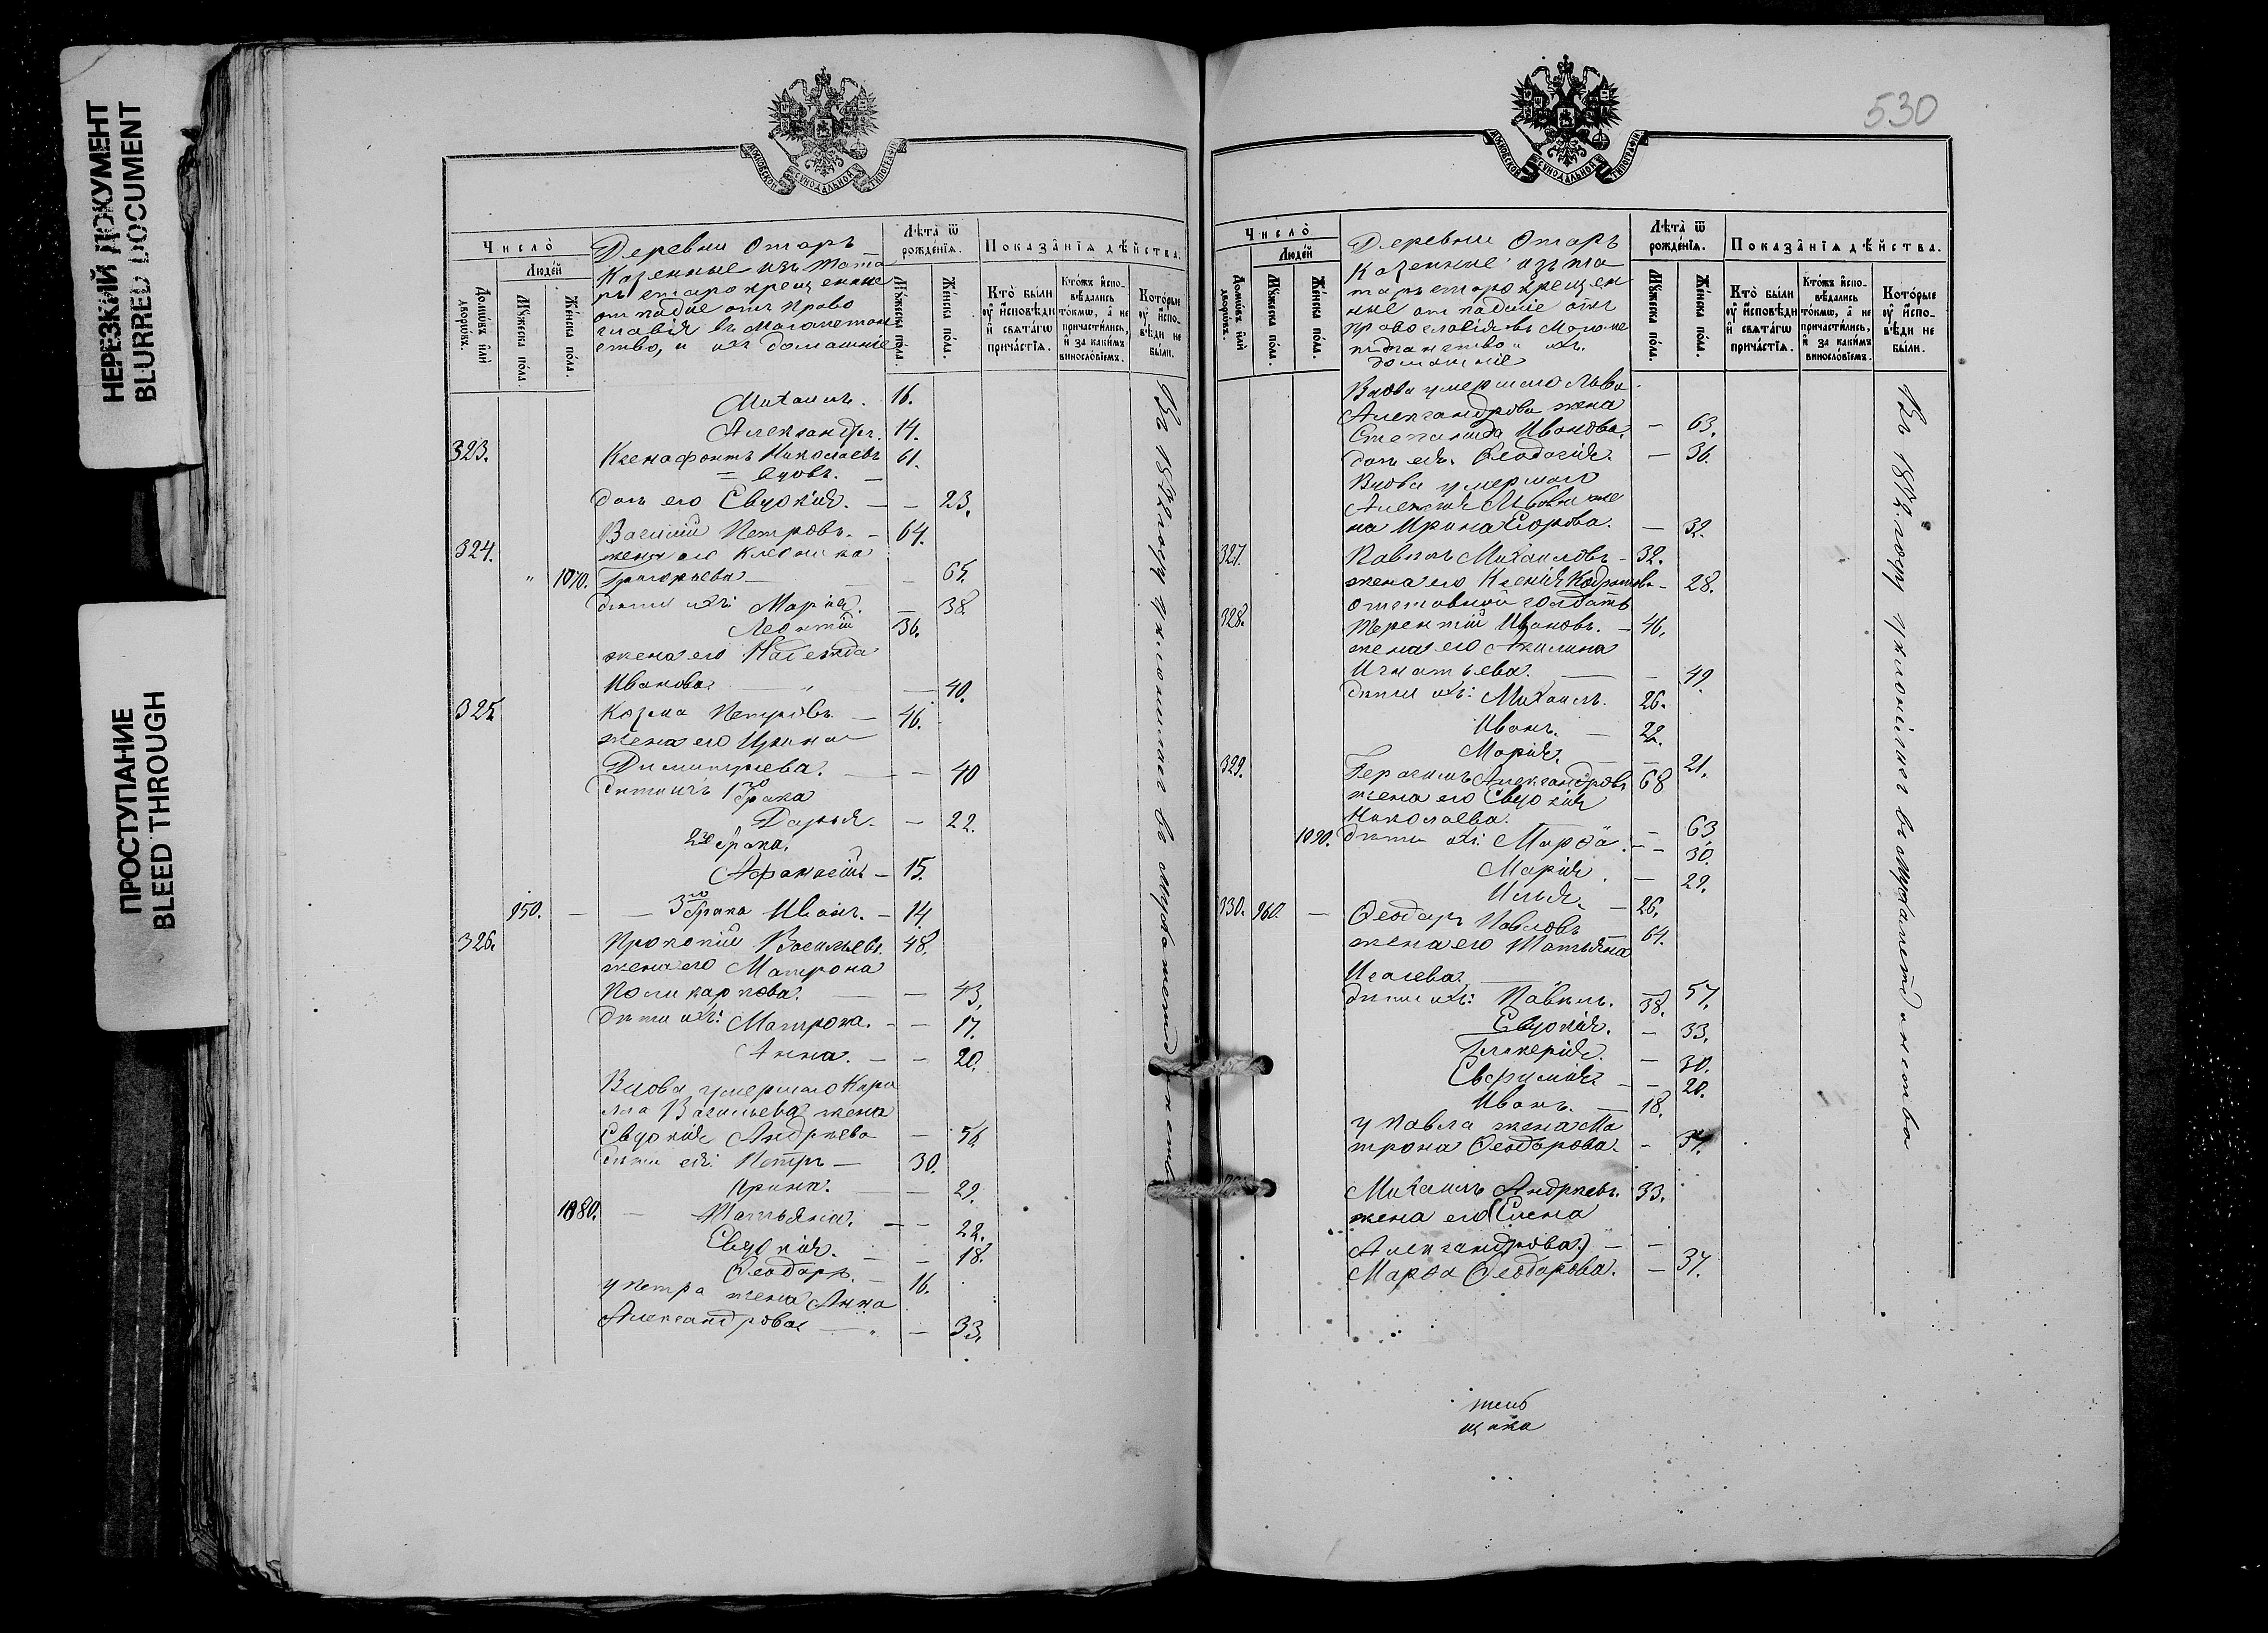 НЕРЕЗКИЙ ДОКУМЕНТ
BLURRED DOCUMENT
ПРОСТУПАНИЕ
BLEED THROUGH
МОСКОВСКОЙ СѴНОДАЛЬНОЙ ТИПОГРАФІИ
Число̀
Людей
Домѡвъ или дворѡвъ.
Мꙋжеска пола.
Же́нска по́ла.
Деревни Отаръ
Казенные изъ тата
ръ старокрещенные
отпадшіе отъ право
славія въ Магометан
ство, и ихъ домашніе
Лѣта̀ ѿ рожде́нїѧ.
Мꙋжеска пола.
Же́нска по́ла.
Показа̑нїѧ дѣ́йства.
Кто̀ бы́ли ᲂу҆ и҆сповѣди и҆ свята́гѡ прича́стїѧ.
Кто́жъ и҆сповѣдались то́кмѡ, а҆ не причасти́лись, и҆ за каки́мъ винословїемъ.
Кото́рые ᲂу҆ и҆сповѣди не бы́ли.
Михаилъ. 16.
Александръ. 14.
323. Ксенофонтъ Николаевъ 61.
= вдовъ. —
дочь его Евдокія. — — 23.
324. Василій Петровъ. — 64.
жена его Клеопика
" 1070. Григорьева — — 65.
дѣти ихъ: Марія. — 38.
Леонтій 36.
жена его Надежда
Иванова — 40.
325. Козма Петровъ. — 46.
жена его Ирина
Димитріева. — — 40
дѣти ихъ 1го брака
Дарья. — 22.
2го брака.
Афанасій — 15.
950. — — 3го брака Иванъ. — 14.
326. Прокопій Васильевъ. 48.
жена его Матрона
Поликарпова. — — 43.
дѣти ихъ: Матрона. — — 17.
Анна. — — 20.
Вдова умершаго Кири
лла Васильева жена
Евдокія Андреева — 56
дѣти ея: Петръ — 30.
Ирина. — — 29.
1080. — Татьяна. — — 22.
Евдокія. — — 18.
Ѳеодоръ. — 16.
у Петра жена Анна
Александрова — " — 33.
530
МОСКОВСКОЙ СѴНОДАЛЬНОЙ ТИПОГРАФІИ
Число̀
Людей
Домѡвъ или дворѡвъ.
Мꙋжеска пола.
Же́нска по́ла.
Деревни Отаръ
Казенные изъ та
таръ старокрещен
ные отпадшіе отъ
православія въ Магоме
танство и ихъ
домашніе
Лѣта̀ ѿ рожде́нїѧ.
Мꙋжеска пола.
Же́нска по́ла.
Показа̑нїѧ дѣ́йства.
Кто̀ бы́ли ᲂу҆ и҆сповѣди и҆ свята́гѡ прича́стїѧ.
Кто́жъ и҆сповѣдались то́кмѡ, а҆ не причасти́лись, и҆ за каки́мъ винословїемъ.
Кото́рые ᲂу҆ и҆сповѣди не бы́ли.
Вдова умершаго Льва
Александрова жена
Степанида Иванова. — 63.
дочь ея Ѳеодосія. — 36.
Вдова умершаго
Алексѣя Львова же
на Ирина Егорова. — 32.
327. Павелъ Михаиловъ — 32.
жена его Ксенія Кодратова — 28.
отставной солдатъ
328. Терентій Ивановъ. — 46.
жена его Акилина
Игнатьева. — — 49.
дѣти ихъ: Михаилъ. 26.
Иванъ. — 22.
Марія. — 21.
329. Герасимъ Александровъ 68
жена его Евдокія
Николаева. — 63.
1090. дѣти ихъ: Марѳа. — — 30.
Марія. — 29.
Илья. — 26.
330. 960. — Ѳеодоръ Павловъ 64.
жена его Татьяна
Исаева. — — 57.
дѣти ихъ: Павелъ. 38.
Евдокія. — 33.
Гликерія. — 30.
Евфимія. — — 20.
Иванъ. — 18.
у Павла жена Ма
трона Ѳеодорова. — 37.
Михаилъ Андреевъ. 33.
жена его (Елена
Александрова) — —
Марѳа Ѳеодорова. — 37.